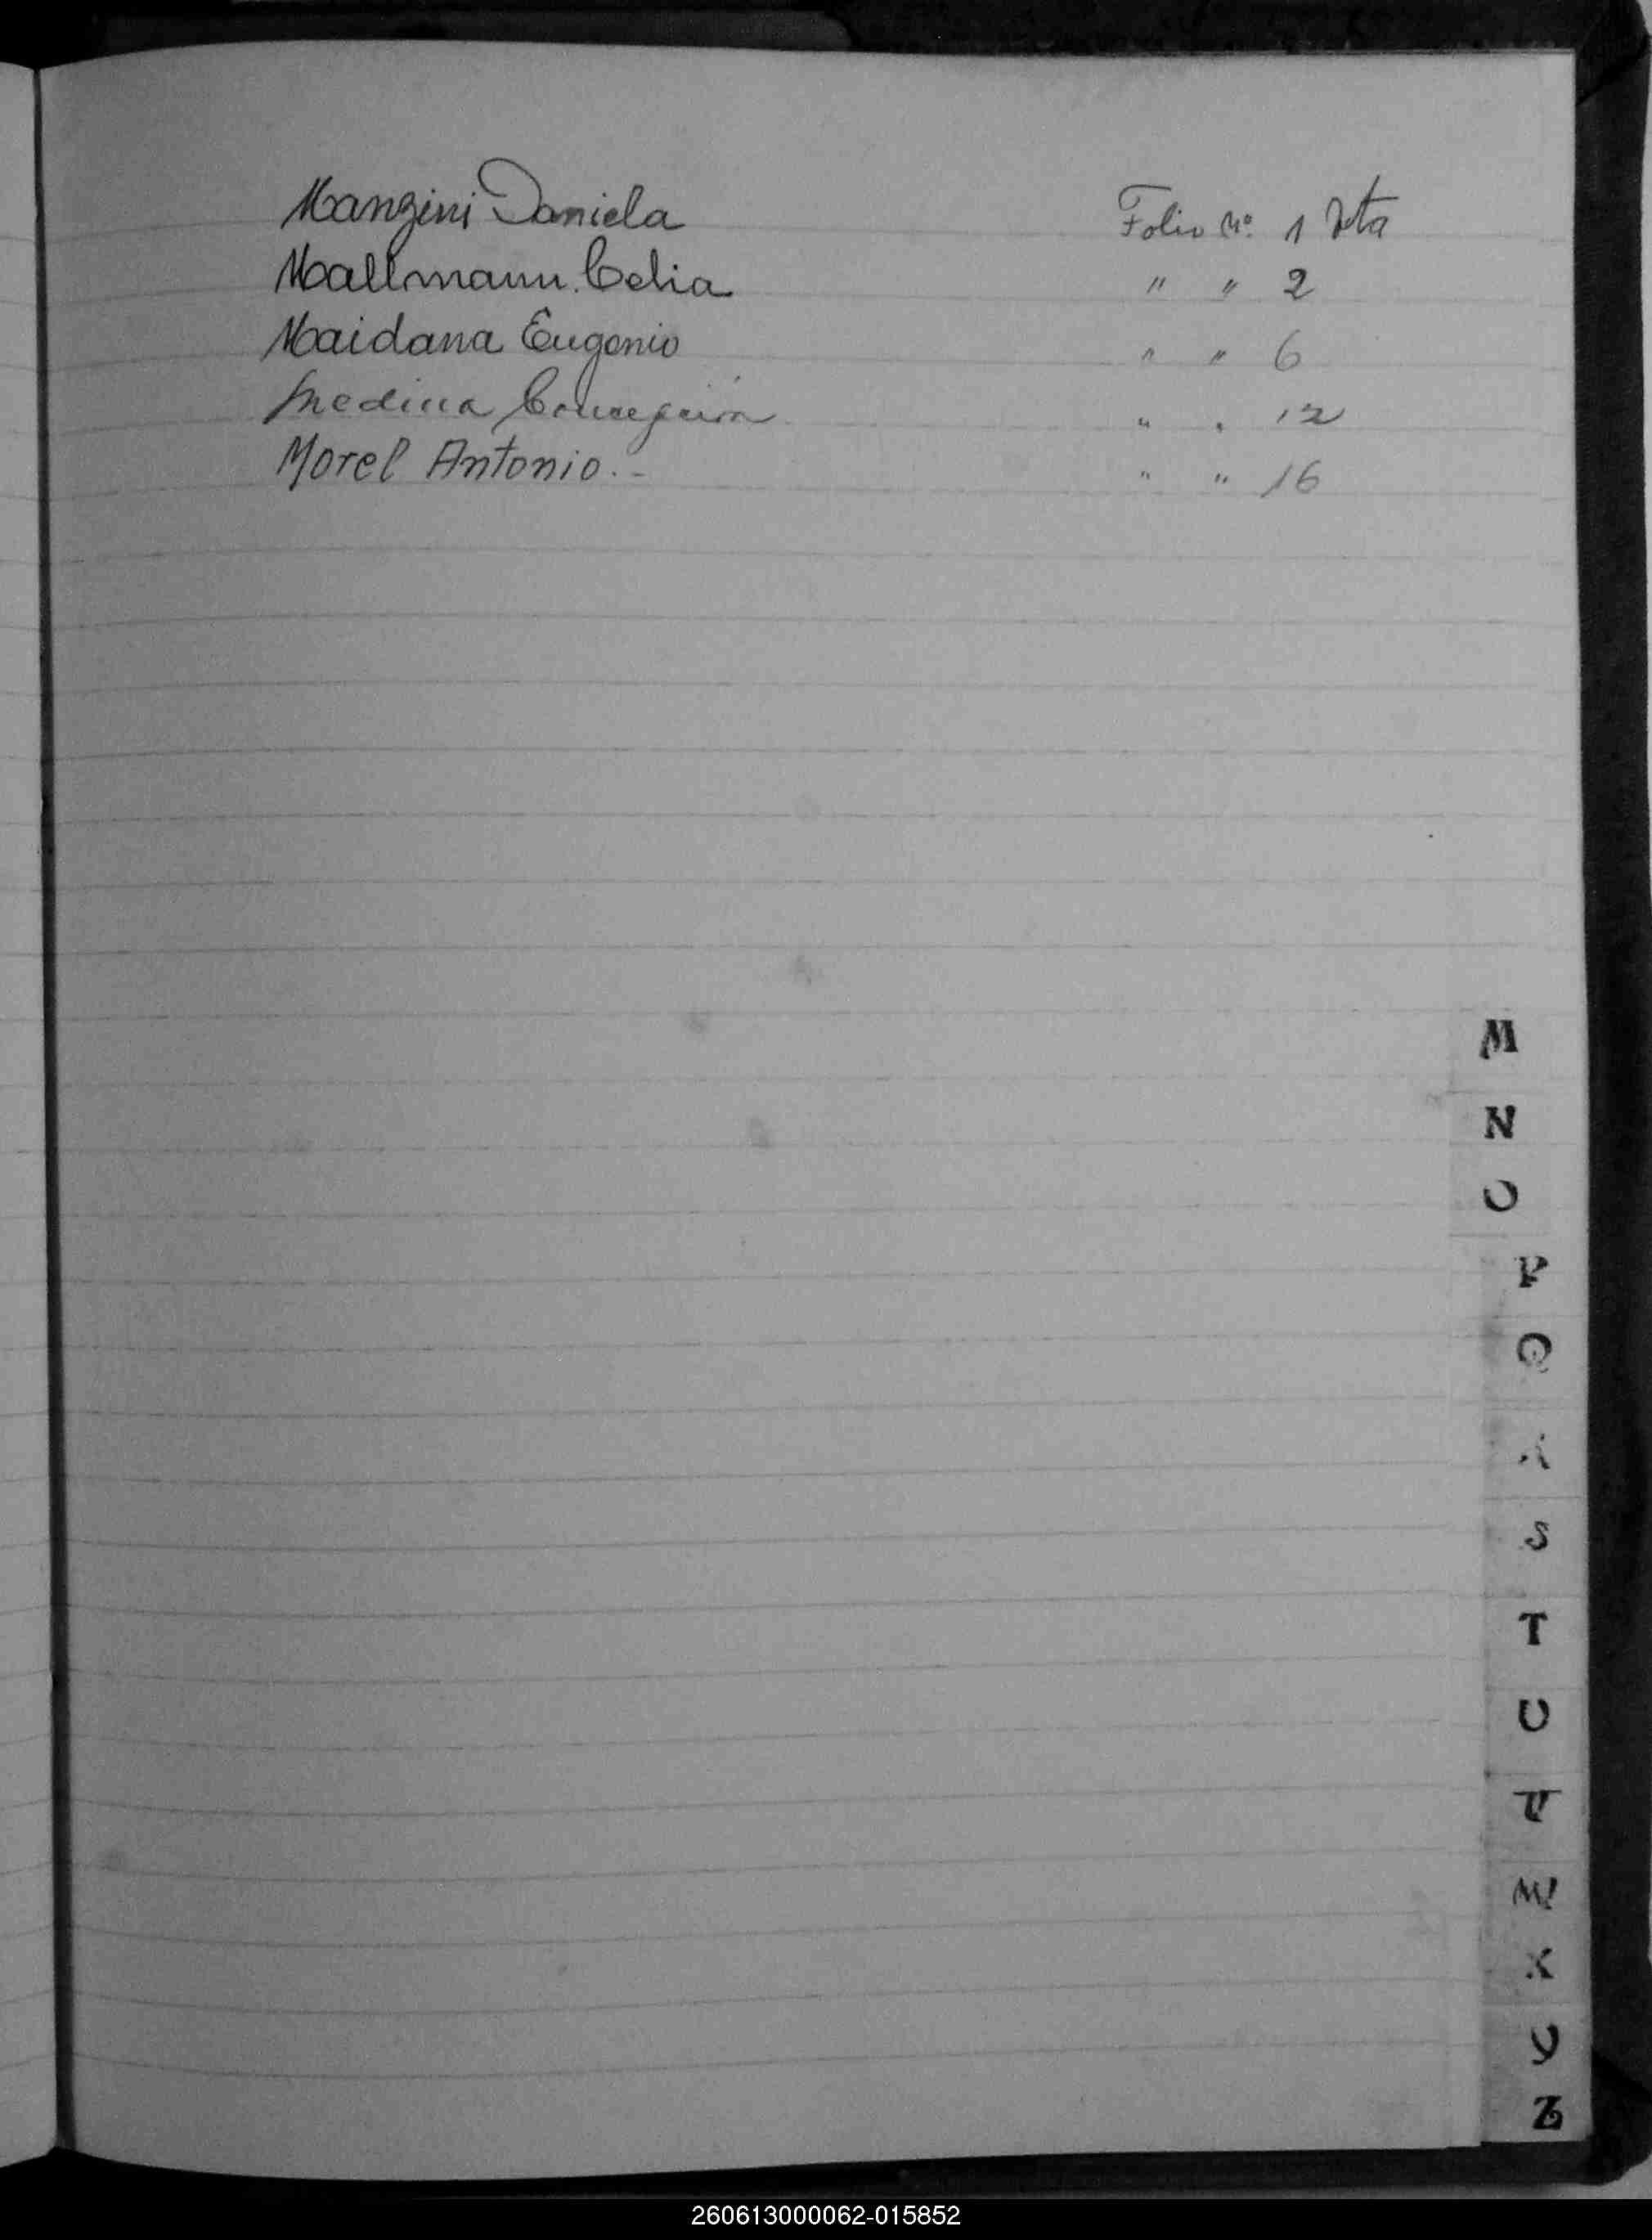 Manzini Daniela Folio Nº 1 Vta
Mallmann Celia " " 2
Maidana Eugenio " " 6
Medina Concepción " " 12
Morel Antonio.- " " 16
M
N
O
P
Q
S
T
U
V
W
X
Y
Z
260613000062-015852